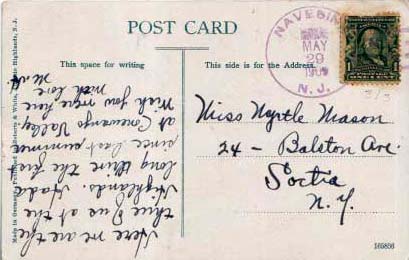 POST CARD
This space for writing
This side is for the Address.
NAVESIN
MAY
29
N. J.
Miss Myrtle Mason
24 – Balston Ave.
Scotia
N. Y.
Here we are the
three of us at the
Highlands. Had a
long time the first
since last summer
at Conewango Valley
Wish you were here
with love
Made in Germany. Published & White, Highlands, N. J.
165856